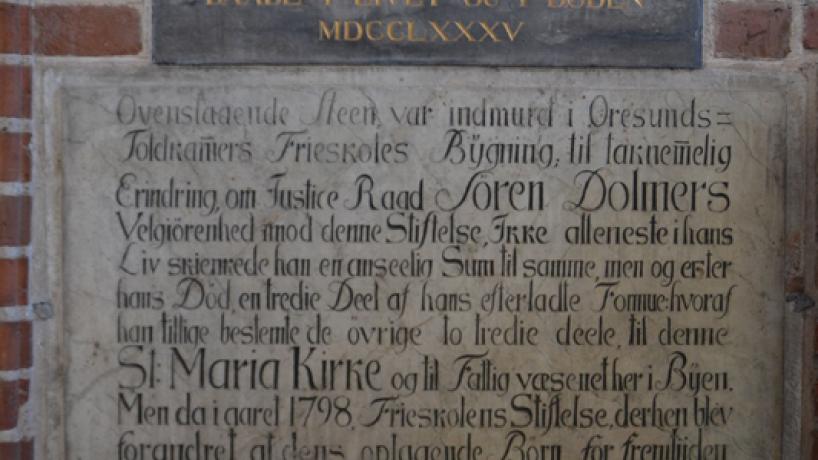 TAABE I LIVET OG I DÖDEN
MDCCLXXXV
Ovenstaaende Steen, var indmuret i Øresunds=
Toldkam̅ers Frieskoles Bÿgning, til taknem̅elig
Erindring, om Justice Raad Sören Dolmers
Velgiörenhed imod denne Stiftelse, Ikke alleneste i hans
Liv skienkede han en anseelig Sum til samme, men og efter
hans Död, en tredie Deel af hans efterladte Formue: hvoraf
han tillige bestemte de ovrige to tredie deele, til denne
St: Maria Kirke og til Fattig væsenet her i Bÿen.
Men da i aaret 1798, Frieskolens Stiftelse, derhen blev
forandret at dens optagende Börn for fremtiden